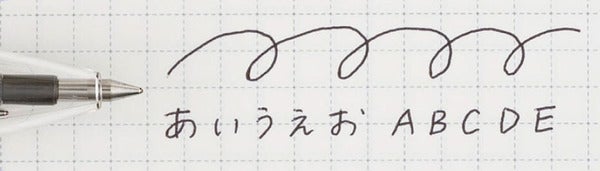 あいうえお ABCDE